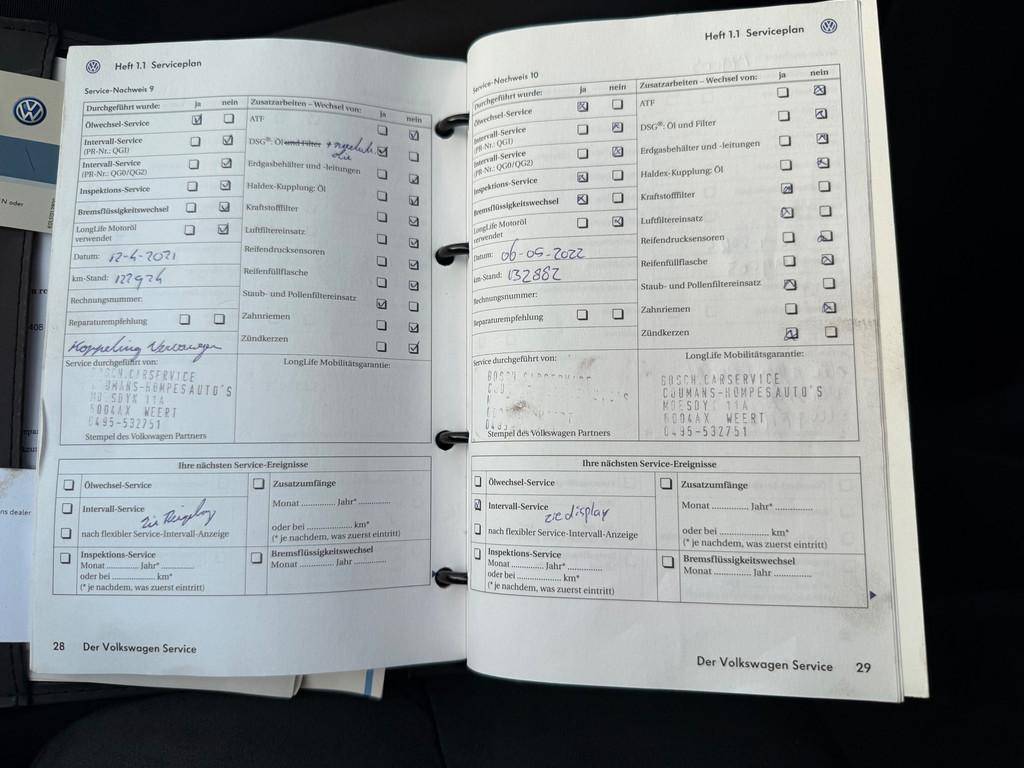 Heft 1.1 Serviceplan
Service-Nachweis 9
Durchgeführt wurde: ja nein
Ölwechsel-Service
Intervall-Service
(PR-Nr.: QG1)
Intervall-Service
(PR-Nr.: QG0/QG2)
Inspektions-Service
Bremsflüssigkeitswechsel
LongLife Motoröl
verwendet
Datum: 12-4-2021
km-Stand: 122924
Rechnungsnummer:
Reparaturempfehlung
Service durchgeführt von:
CARSERVICE
COUMANS-HOMPESAUTO'S
MOESDYK 11A
6004AX WEERT
0495-532751
Stempel des Volkswagen Partners
Zusatzarbeiten – Wechsel von: ja nein
ATF
DSG®: Öl und Filter
Erdgasbehälter und -leitungen
Haldex-Kupplung: Öl
Kraftstofffilter
Luftfiltereinsatz
Reifendrucksensoren
Reifenfüllflasche
Staub- und Pollenfiltereinsatz
Zahnriemen
Zündkerzen
LongLife Mobilitätsgarantie:
Ihre nächsten Service-Ereignisse
Ölwechsel-Service
Intervall-Service
nach flexibler Service-Intervall-Anzeige
Inspektions-Service
Monat ............ Jahr* ............
oder bei ............ km*
(* je nachdem, was zuerst eintritt)
Zusatzumfänge
Monat ............ Jahr* ............
oder bei ............ km*
(* je nachdem, was zuerst eintritt)
Bremsflüssigkeitswechsel
Monat ............ Jahr ............
28 Der Volkswagen Service
Heft 1.1 Serviceplan
Service-Nachweis 10
Durchgeführt wurde: ja nein
Ölwechsel-Service
Intervall-Service
(PR-Nr.: QG1)
Intervall-Service
(PR-Nr.: QG0/QG2)
Inspektions-Service
Bremsflüssigkeitswechsel
LongLife Motoröl
verwendet
Datum: 06-05-2022
km-Stand: 132882
Rechnungsnummer:
Reparaturempfehlung
Service durchgeführt von:
Stempel des Volkswagen Partners
Zusatzarbeiten – Wechsel von: ja nein
ATF
DSG®: Öl und Filter
Erdgasbehälter und -leitungen
Haldex-Kupplung: Öl
Kraftstofffilter
Luftfiltereinsatz
Reifendrucksensoren
Reifenfüllflasche
Staub- und Pollenfiltereinsatz
Zahnriemen
Zündkerzen
LongLife Mobilitätsgarantie:
BOSCH CARSERVICE
COUMANS-HOMPESAUTO'S
MOESDYK 11A
6004AX WEERT
0495-532751
Ihre nächsten Service-Ereignisse
Ölwechsel-Service
Intervall-Service
zie display
nach flexibler Service-Intervall-Anzeige
Inspektions-Service
Monat ............ Jahr* ............
oder bei ............ km*
(* je nachdem, was zuerst eintritt)
Zusatzumfänge
Monat ............ Jahr* ............
oder bei ............ km*
(* je nachdem, was zuerst eintritt)
Bremsflüssigkeitswechsel
Monat ............ Jahr ............
Der Volkswagen Service 29